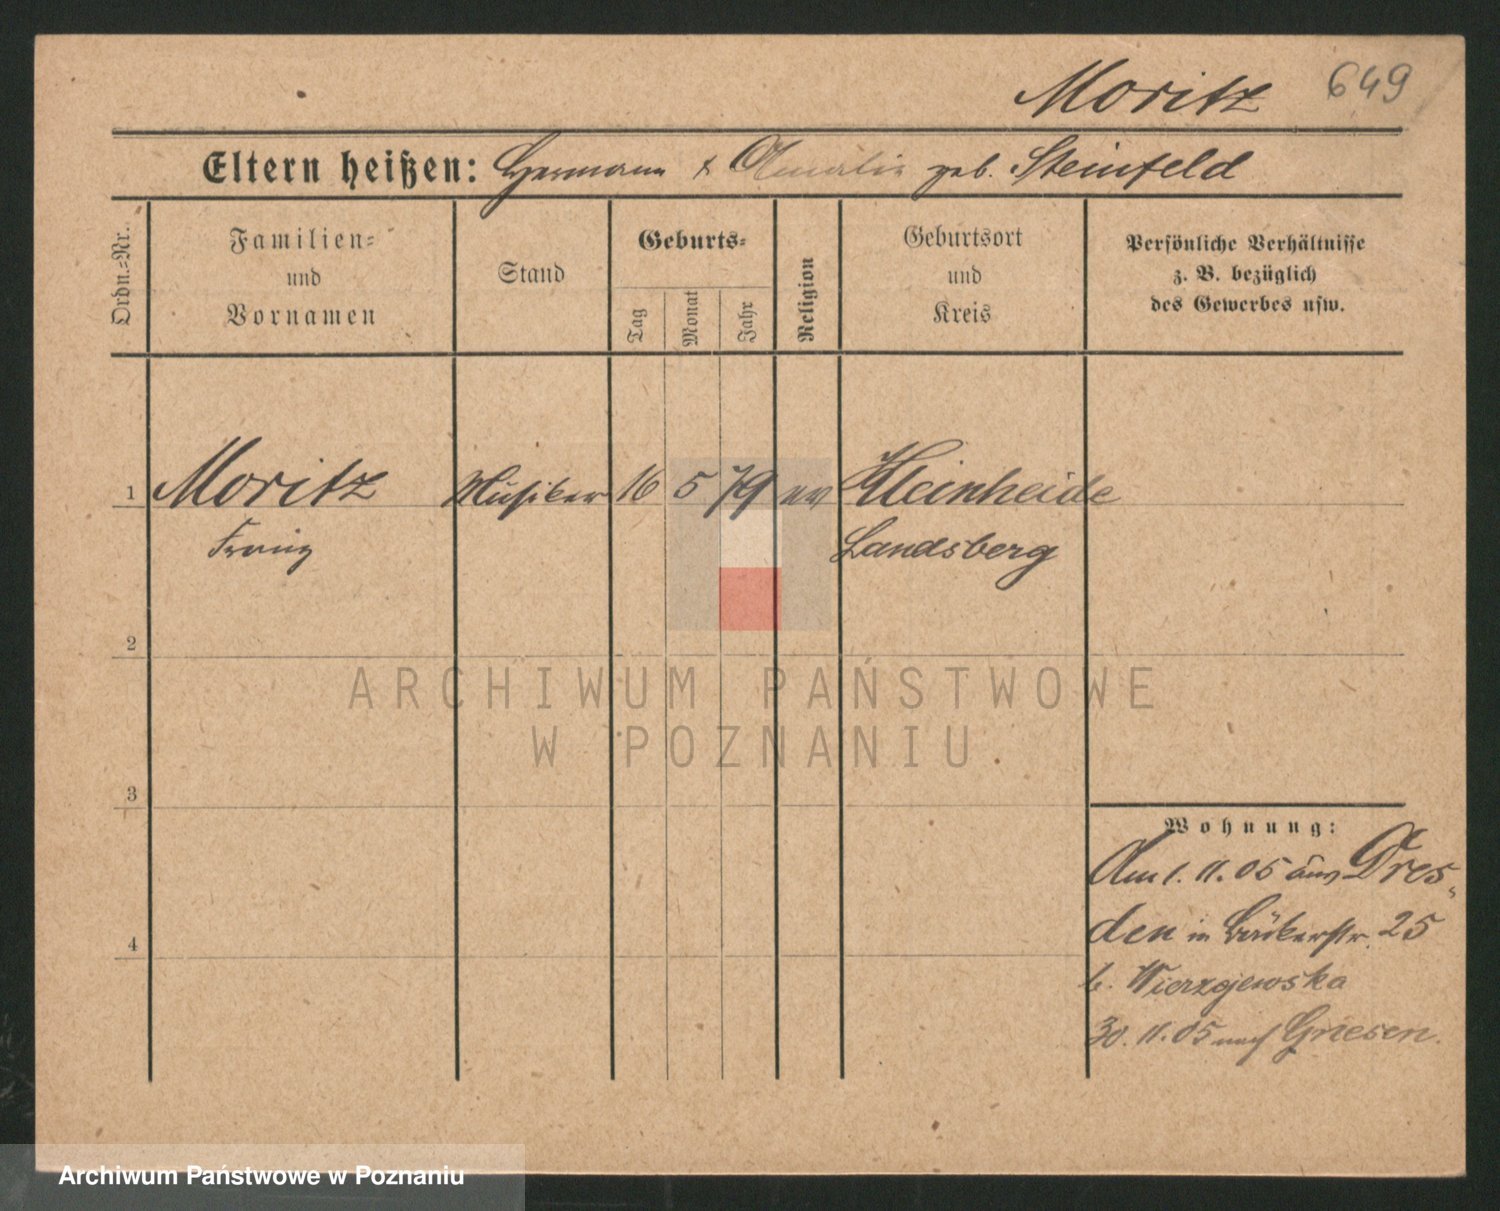 Moritz 649
Eltern heißen: Hermann & Amalie geb. Steinfeld
Ordn.-Nr.
Familien-
und
Vornamen
Stand
Geburts-
Tag
Monat
Jahr
Religion
Geburtsort
und
Kreis
Persönliche Verhältnisse
z. B. bezüglich
des Gewerbes usw.
1 Moritz Musiker 16 5 79 ev Kleinheide
Franz Landsberg
2
ARCHIWUM PAŃSTWOWE
W POZNANIU
3
Wohnung:
Am 1. 11. 05 aus Dres-
4
den in Bäckerstr. 25
b. Wierzejewska
30. 11. 05 nach Gnesen.
Archiwum Państwowe w Poznaniu